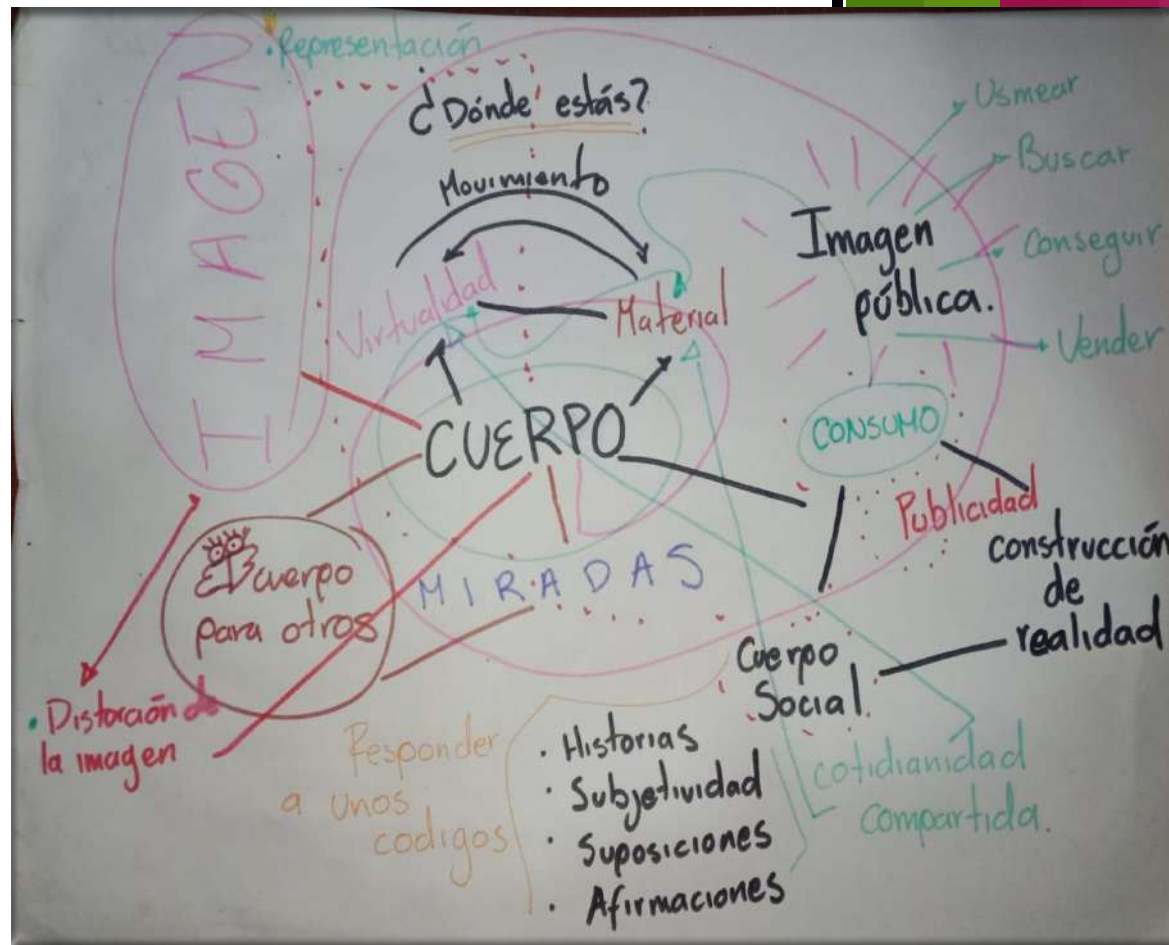 IMAGEN
• Representación
¿Dónde estás?
Movimiento
Virtualidad
Material
CUERPO
MIRADAS
Imagen
pública.
Usmear
Buscar
Conseguir
Vender
CONSUMO
Publicidad
construcción
de
realidad
El cuerpo
para otros
• Distorción de
la imagen
Cuerpo
Social.
Responder
a unos
codigos
• Historias
• Subjetividad
• Suposiciones
• Afirmaciones
cotidianidad
compartida.